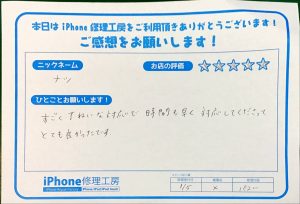 本日は iPhone 修理工房をご利用頂きありがとうございます！
ご感想をお願いします！
ニックネーム
お店の評価 ☆☆☆☆☆
ナツ
ひとことお願いします！
すごくていねいな対応で 時間も早く対応してくださって
とても良かったです
iPhone修理工房
1/5 ×